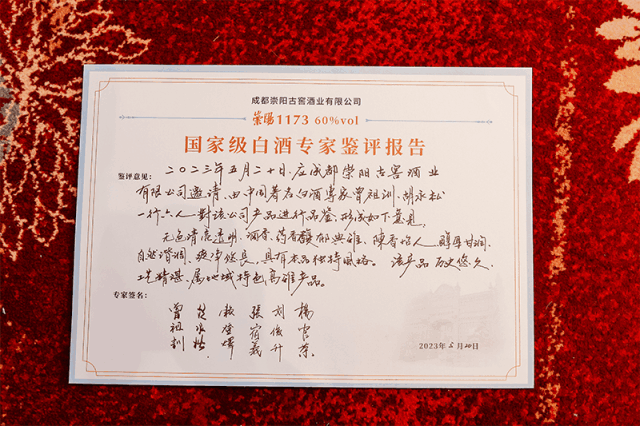 成都崇阳古窖酒业有限公司
崇陽1173 60%vol
国家级白酒专家鉴评报告
鉴评意见：二〇二三年五月二十日，应成都崇阳古窖酒业
有限公司邀请，由中国著名白酒专家曾祖训、胡永松
一行六人，对该公司产品进行品鉴，形成如下意见：
无色清亮透明，酒香、药香馥郁典雅，陈香怡人，醇厚甘润，
自然谐调，爽净悠长，具有本品独特风格。该产品历史悠久，
工艺精湛，属地域特色高雅产品。
专家签名：
曾祖训 胡永松 张宿义 刘俊升 杨官荣
2023年5月20日